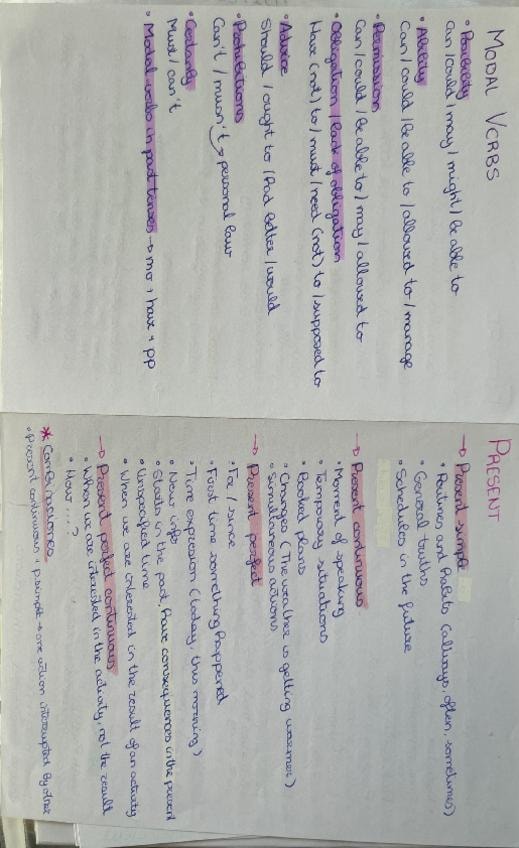 MODAL VERBS
• Possibility
Can / could / may / might / be able to
• Ability
Can / could / be able to / allowed to / manage
• Permission
Can / could / be able to / may / allowed to
• Obligation / lack of obligation
Have (not) to / must / need (not) to / supposed to
• Advice
Should / ought to / had better / would
• Prohibitions
Can't / musn't → personal law
• Certainty
Must / can't
• Modal verbs in past tenses → mo + have + pp
PRESENT
→ Present simple
• Routines and habits (always, often, sometimes)
• General truths
• Schedules in the future
→ Present continuous
• Moment of speaking
• Temporary situations
• Booked plans
• Changes (The weather is getting warmer)
• Simultaneous actions
→ Present perfect
• For / since
• First time something happened
• Time expression (today, this morning)
• New info
• Starts in the past, have consequences in the present
• Unspecified time
• When we are interested in the result of an activity
→ Present perfect continuous
• When we are interested in the activity, not the result
• How ...?
* Combinaciones
• Present continuous + p.simple → one action interrupted by other